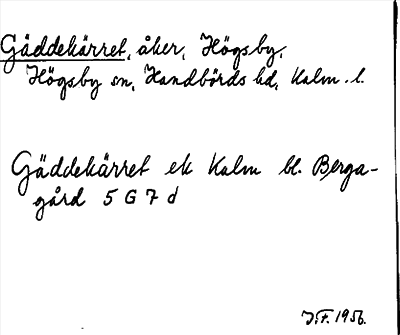 Gäddekärret, åker, Högsby,
Högsby sn, Handbörds hd, Kalm. l.
Gäddekärret ek Kalm bl. Berga-
gård 5 G 7 d
J.F. 1956.